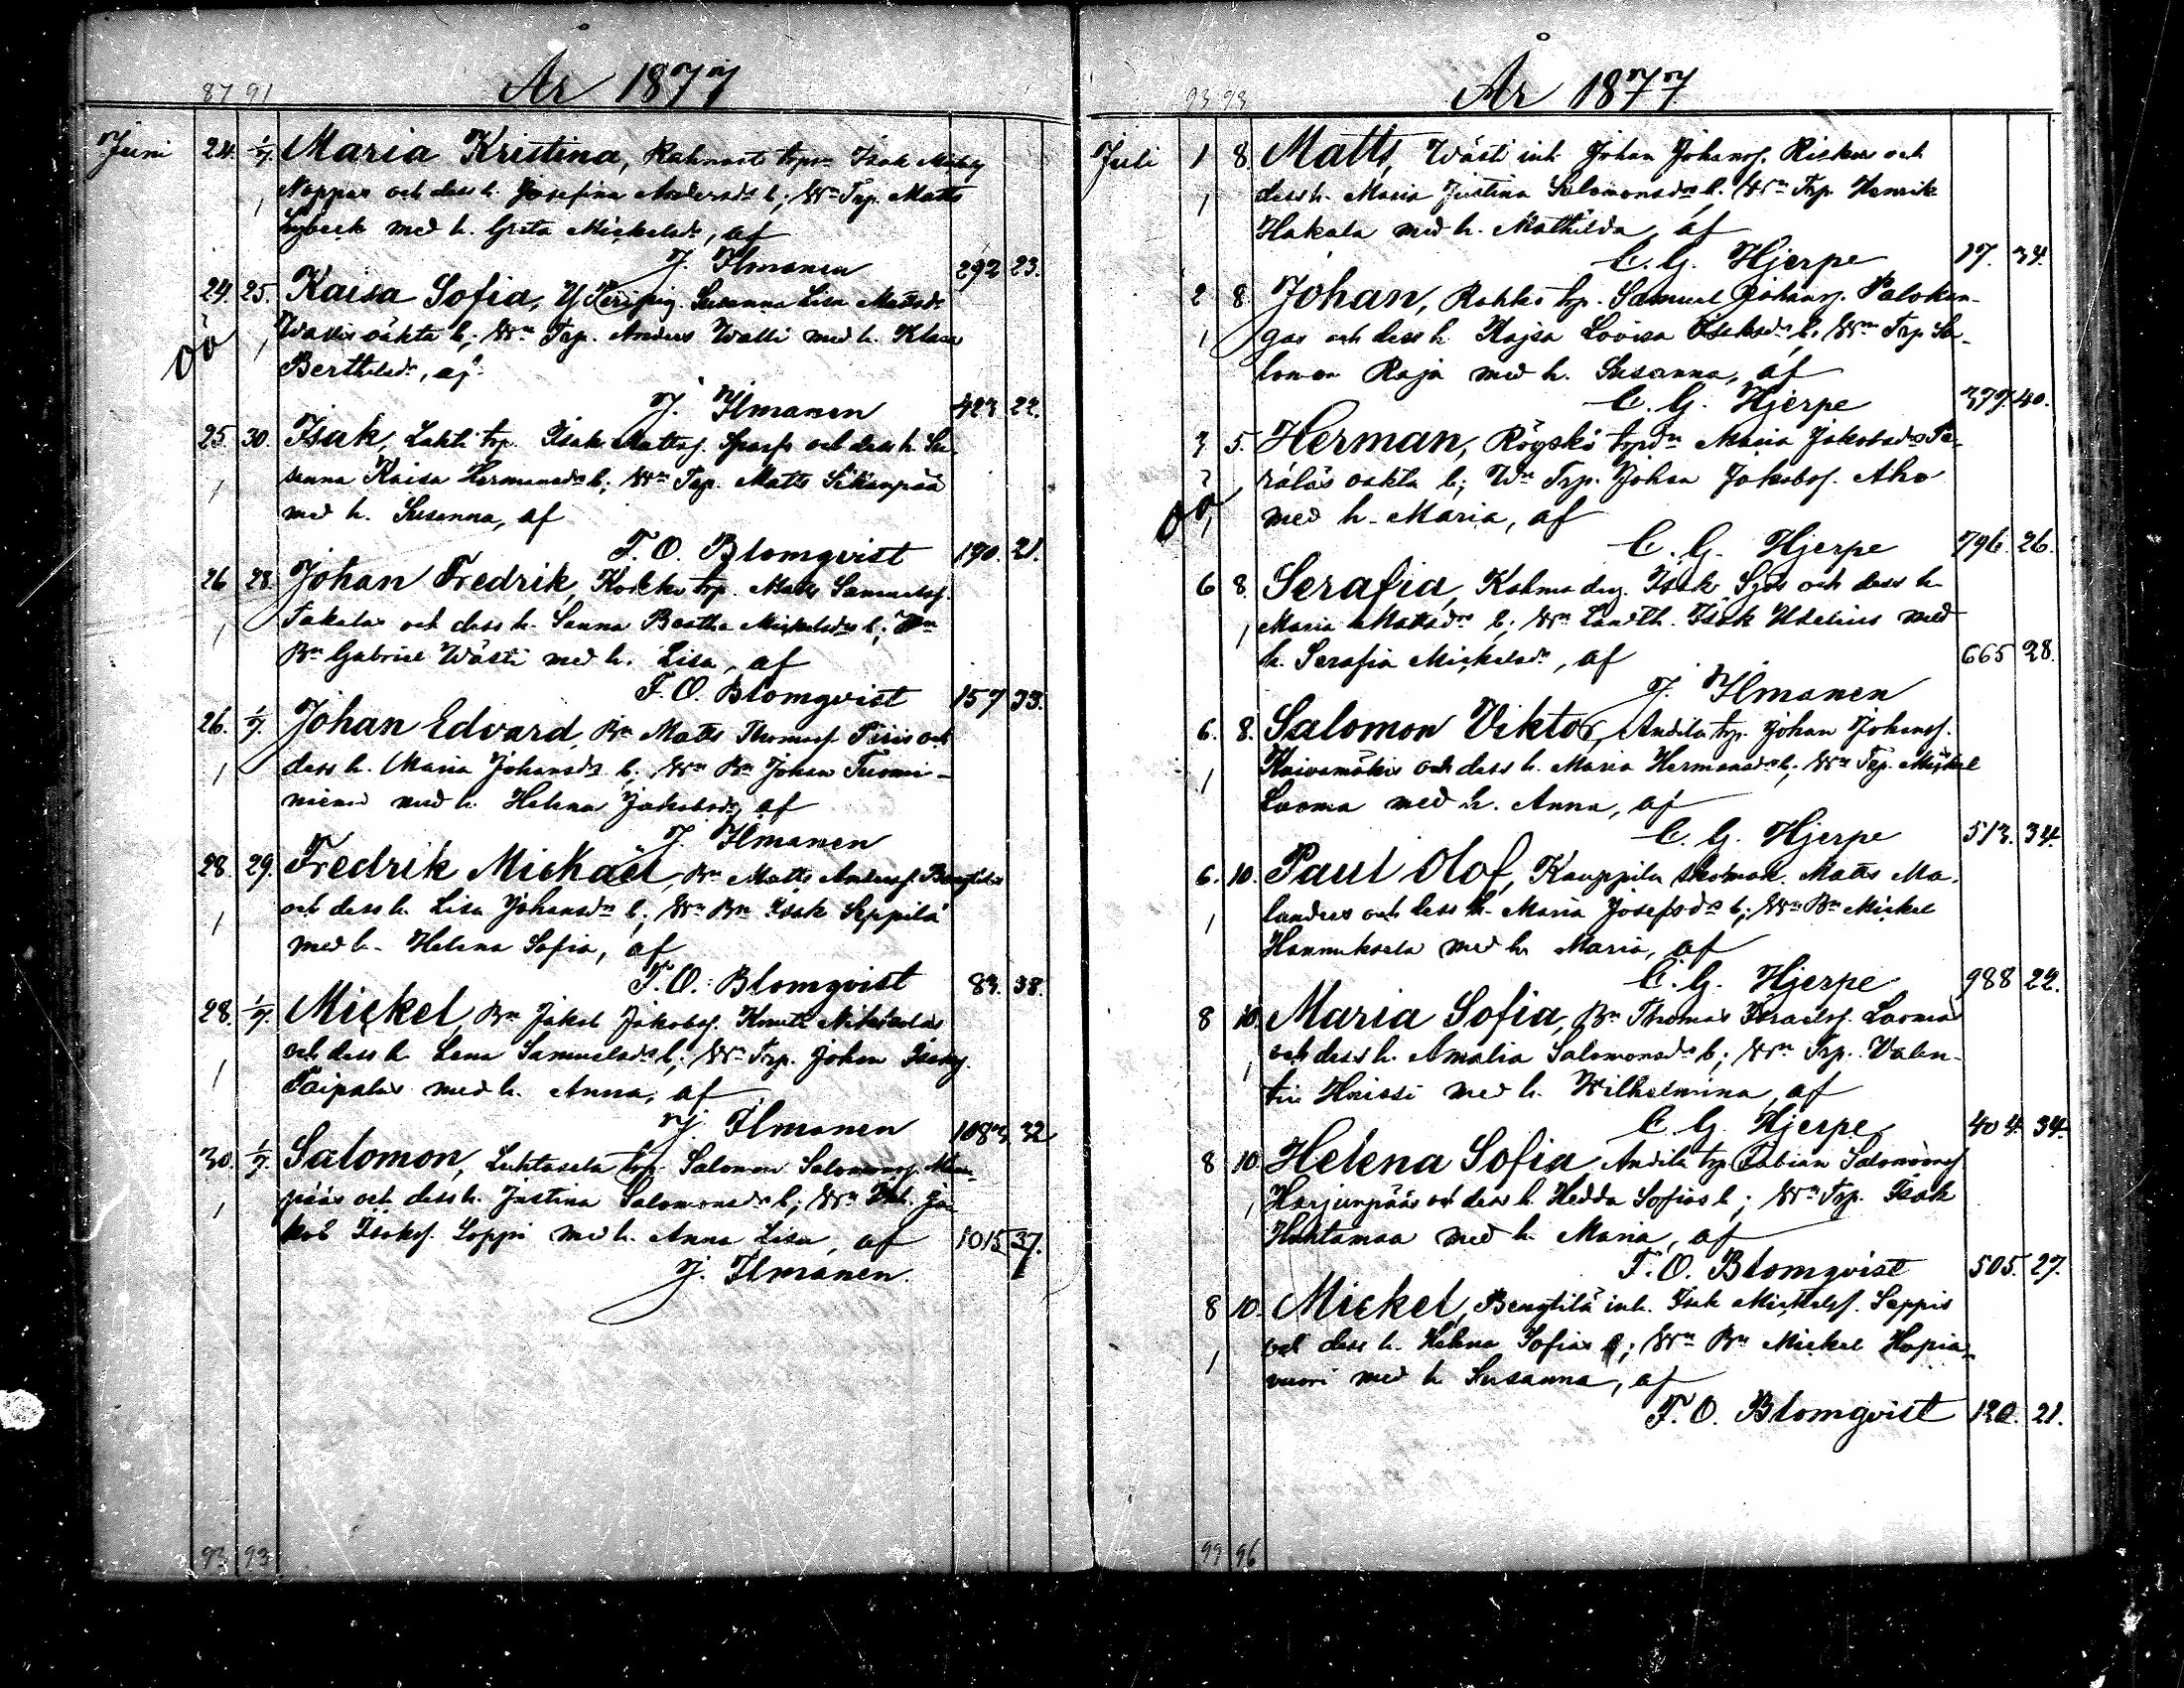 År 1877
87 91
Juni 24. 1/7. Maria Kristina, Rahnasto trpr Isak Mickelsf
Noppas och dess h. Josefina Andersdr b; Wn Trp. Matts
1 Lybeck med h. Greta Mickelsdr, af
J. Ilmanen 292 23.
24. 25. Kaisa Sofia, Susanna Lisa Mattsdr
oä 1 oäkta b; Wn Trp. Anders Walli med h. Klara
Berthelsdr, af
J. Ilmanen 423 22.
25 30. Isak, Lahti trp. Isak Mattsf. Sparfs och dess h. Su-
1 sanna Kaisa Hermansdr b; Wn Trp. Matts Sikanpää
med h. Susanna, af
F. O. Blomqvist 190. 21.
26 28. Johan Fredrik, Koskue trp. Matts Samuelsf.
1 Takalas och dess h. Sanna Beatha Mickelsdr b; Wn
Bn Gabriel Wästi med h. Lisa, af
F. O. Blomqvist 157 33.
26. 1/7. Johan Edvard, Bn Matts Thomasf. Piiris och
1 dess h. Maria Johansdr b; Wn Bn Johan Tuomi-
niemi med h. Helena Jakobsdr, af
J. Ilmanen
28. 29. Fredrik Michaël, Bn Matts Andersf. Bengtiläs
1 och dess h. Lisa Johansdr b; Wn Bn Isak Seppilä
med h. Helena Sofia, af
F. O. Blomqvist 83. 38.
28. 1/7. Mickel, Bn Jakob Jakobsf. Knuti Nikkoläs
1 och dess h. Lena Samuelsdr b; Wn Trp. Johan Isaksf.
Taipalus med h. Anna, af
J. Ilmanen 1083 32
30. 1/7. Salomon, Luhtasela trp. Salomon Salomonsf.
1 pääs och dess h. Justina Salomonsdr b; Wn Ja-
kob Isaksf. Loppi med h. Anna Lisa, af 1015 37.
J. Ilmanen.
92 93
År 1877
93 93
Juli 1 8. Matts, Wästi inh. Johan Johansf. Riskus och
1 dess h. Maria Justina Salomonsdr b; Wn Trp. Henrik
Hakala med h. Mathilda, af
C. G. Hjerpe 17. 34.
2 8. Johan, Rahko trp. Samuel Johansf. Palokan-
1 gas och dess h. Kajsa Lovisa Isaksdr b; Wn Trp. Sa-
lomon Raja med h. Susanna, af
C. G. Hjerpe 377. 40.
3 5. Herman, Röyskö trpdr Maria Jakobsdr Pe-
räläs oäkta b; Wn Trp. Johan Jakobsf. Aho
oä 1 med h. Maria, af
C. G. Hjerpe 796. 26.
6 8. Serafia, Kalma drg. Isak Sjös och dess h.
1 Maria Mattsdr b; Wn Landth. Isak Udelius med
h. Serafia Mickelsdr, af 665 28.
J. Ilmanen
6. 8. Salomon Viktor, Andila trp. Johan Johansf.
1 Kaivomäkis och dess h. Maria Hermansdr b; Wn Trp. Mickel
Luoma med h. Anna, af
C. G. Hjerpe 513. 34.
6. 10. Paul Olof, Kauppila skomak. Matts Ma-
1 landers och dess h. Maria Josefsdr b; Wn Bn Mickel
Hannuksela med h. Maria, af
C. G. Hjerpe 988 22.
8 10. Maria Sofia, Bn Thomas Israelsf. Luomas
1 och dess h. Amalia Salomonsdr b; Wn Trp. Valen-
tin Knissi med h. Wilhelmina, af
C. G. Hjerpe 404. 34.
8 10. Helena Sofia, Andila trp. Fabian Salomonsf.
1 Harjunpääs och dess h. Hedda Sofias b; Wn Trp. Isak
Huhtamaa med h. Maria, af
F. O. Blomqvist 505. 27.
8 10. Mickel, Bengtilä inh. Isak Mickelsf. Seppis
1 och dess h. Helena Sofias b; Wn Bn Mickel Hapia-
vuori med h. Susanna, af
F. O. Blomqvist 120. 21.
99 96